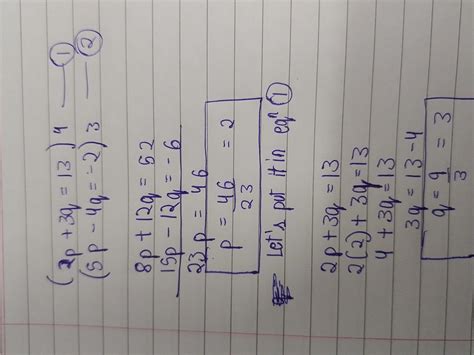 (2p + 3q = 13) 4 — ①
(5p - 4q = -2) 3 — ②
8p + 12q = 52
15p - 12q = -6
23p = 46
p = 46/23 = 2
Let's put it in eqn ①
2p + 3q = 13
2(2) + 3q = 13
4 + 3q = 13
3q = 13 - 4
q = 9/3 = 3